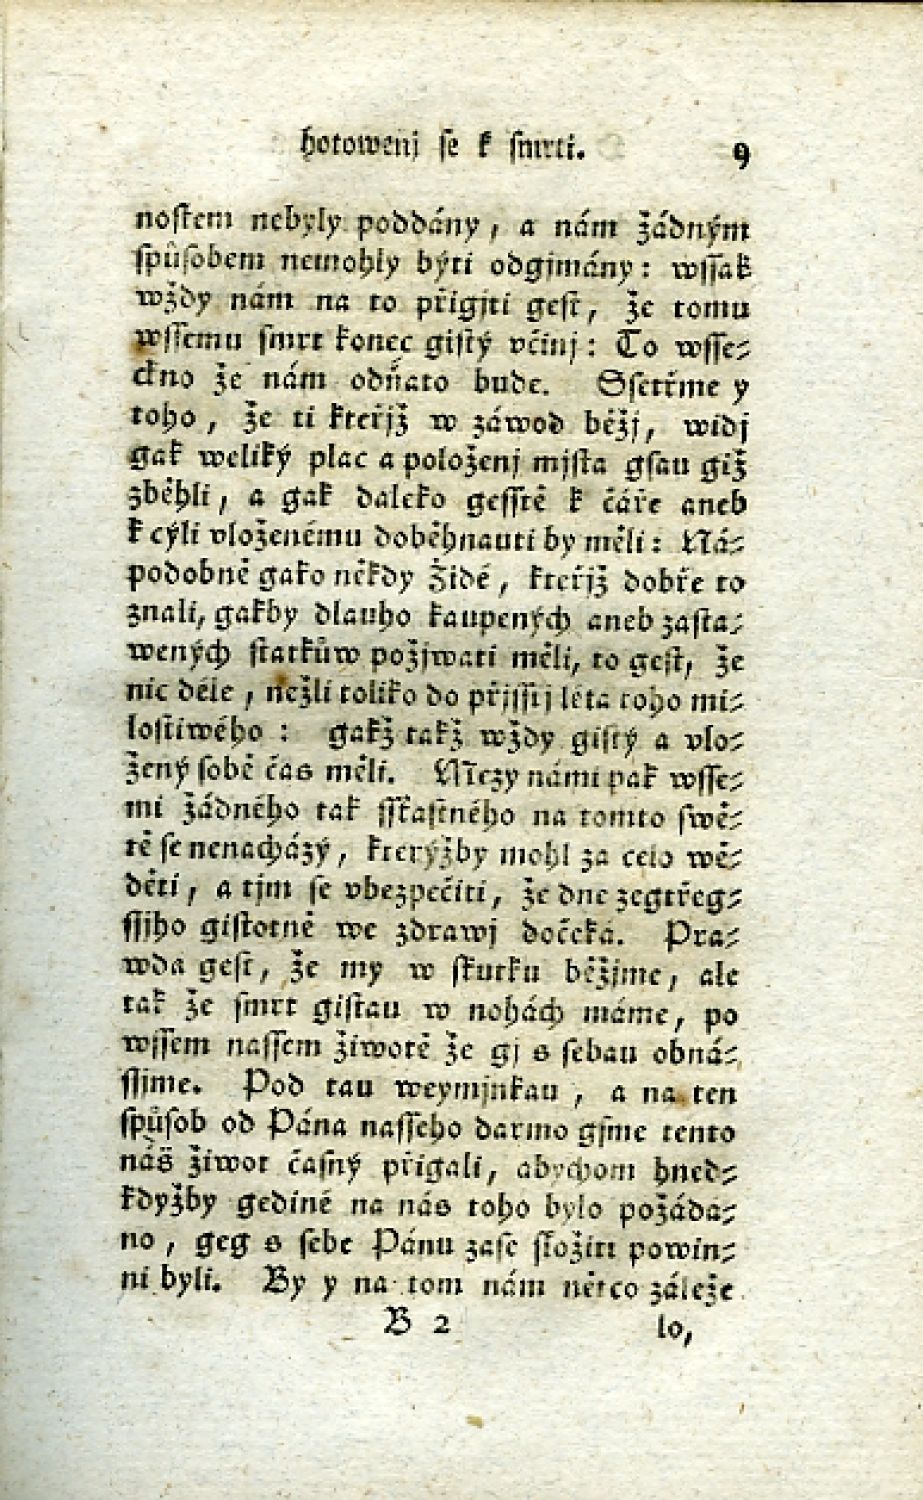 hotowenj se k smrti. 9
nostem nebyly poddány, a nám žádným
spůsobem nemohly býti odgjmány: wssak
wždy nám na to přigjti gest, že tomu
wssemu smrt konec gistý včinj: To wsse-
ckno že nám odňato bude. Ssetřme y
toho, že ti kteřjž w záwod běžj, widj
gak weliký plac a položenj mjsta gsau giž
zběhli, a gak daleko gesstě k čáře aneb
k cýli vloženému doběhnauti by měli: Ná-
podobně gako někdy Židé, kteřjž dobře to
znali, gakby dlauho kaupených aneb zasta-
wených statkůw požjwati měli, to gest, že
nic déle, nežli toliko do přjsstj léta toho mi-
lostiwého: gakž takž wždy gistý a vlo-
žený sobě čas měli. Mezy námi pak wsse-
mi žádného tak sstiastného na tomto swě-
tě se nenacházý, kterýžby mohl za celo wě-
děti, a tjm se vbezpečiti, že dne zegtřeg-
ssjho gistotně we zdrawj dočeká. Pra-
wda gest, že my w skutku běžjme, ale
tak že smrt gistau w nohách máme, po
wssem nassem žiwotě že gj s sebau obná-
ssjme. Pod tau weymjnkau, a na ten
spůsob od Pána nasseho darmo gsme tento
náš žiwot časný přigali, abychom hned-
kdyžby gediné na nás toho bylo požáda-
no, geg s sebe Pánu zase složiti powin-
ni byli. By y na tom nám něrco záleže
B 2 lo,